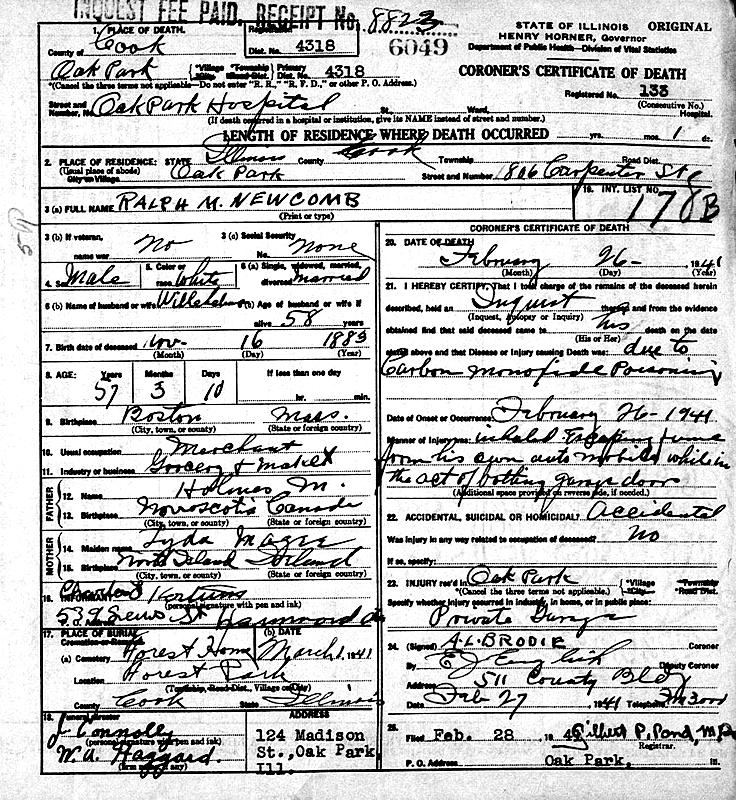 INQUEST FEE PAID. RECEIPT No. 8823
6049
STATE OF ILLINOIS ORIGINAL
HENRY HORNER, Governor
Department of Public Health—Division of Vital Statistics
CORONER'S CERTIFICATE OF DEATH
Registered No. 133
(Consecutive No.)
1. PLACE OF DEATH.
County of Cook
Registration
Dist. No. 4318
Oak Park
*Village Township
City Road Dist.
Primary
Dist. No. 4318
*(Cancel the three terms not applicable—Do not enter "R. R.," "R. F. D.," or other P. O. Address.)
Street and
Number, No. Oak Park Hospital St., Ward, Hospital.
(If death occurred in a hospital or institution, give its NAME instead of street and number.)
LENGTH OF RESIDENCE WHERE DEATH OCCURRED yrs. mos. 1 ds.
2. PLACE OF RESIDENCE: STATE Illinois County Cook Township Road Dist.
(Usual place of abode)
City or Village Oak Park Street and Number 806 Carpenter St
3 (a) FULL NAME RALPH M. NEWCOMB
(Print or type)
19. INT. LIST NO.
178B
3 (b) If veteran,
name war No
3 (c) Social Security
No. None
4. Sex Male
5. Color or
race White
6 (a) Single, widowed, married,
divorced Married
6 (b) Name of husband or wife
6 (c) Age of husband or wife if
alive 58 years
7. Birth date of deceased Nov- 16 1883
(Month) (Day) (Year)
8. AGE: Years Months Days If less than one day
57 3 10 hr. min.
9. Birthplace Boston Mass.
(City, town, or county) (State or foreign country)
10. Usual occupation Merchant
11. Industry or business Grocery & Market
FATHER
12. Name Holmes M.
13. Birthplace Novascotia Canada
(City, town, or county) (State or foreign country)
MOTHER
14. Maiden name Lyda
15. Birthplace
(City, town, or county) (State or foreign country)
16. INFORMANT
(personal signature with pen and ink)
P. O. Address 539 St Hammond
17. PLACE OF BURIAL
Cremation or Removal
(b) DATE
(a) Cemetery Forest Home March 1, 1941
Location Forest Park
(Township, Road Dist., Village or City)
County Cook State Illinois
18. Funeral Director
J Connolly
(personal signature with pen and ink)
W. A. Haggard.
(firm name, if any)
ADDRESS
124 Madison
St., Oak Park
Ill.
CORONER'S CERTIFICATE OF DEATH
20. DATE OF DEATH
February 26- 1941
(Month) (Day) (Year)
21. I HEREBY CERTIFY, That I took charge of the remains of the deceased herein
described, held an Inquest thereon and from the evidence
(Inquest, Autopsy or Inquiry)
obtained find that said deceased came to his death on the date
(His or Her)
stated above and that Disease or Injury causing Death was: due to
Carbon Monoxide Poisoning
Date of Onset or Occurrence: February 26- 1941
Manner of Injury: inhaled Escaping fumes
from his own auto mobile while in
the act of garage door
(Additional space provided on reverse side, if needed.)
22. ACCIDENTAL, SUICIDAL OR HOMICIDAL? Accidental
Was injury in any way related to occupation of deceased? No
If so, specify:
23. INJURY rec'd in Oak Park
*Village Township
City Road Dist.
*(Cancel the three terms not applicable.)
Specify whether injury occurred in industry, in home, or in public place:
Private Garage
24. (Signed) A.L. BRODIE Coroner
By E J English Deputy Coroner
Address 511 County Bldg
Date Feb 27 1941 Telephone
25. Filed Feb. 28 1941 Gilbert P. Pond, M.D.
Registrar.
P. O. Address Oak Park, Ill.